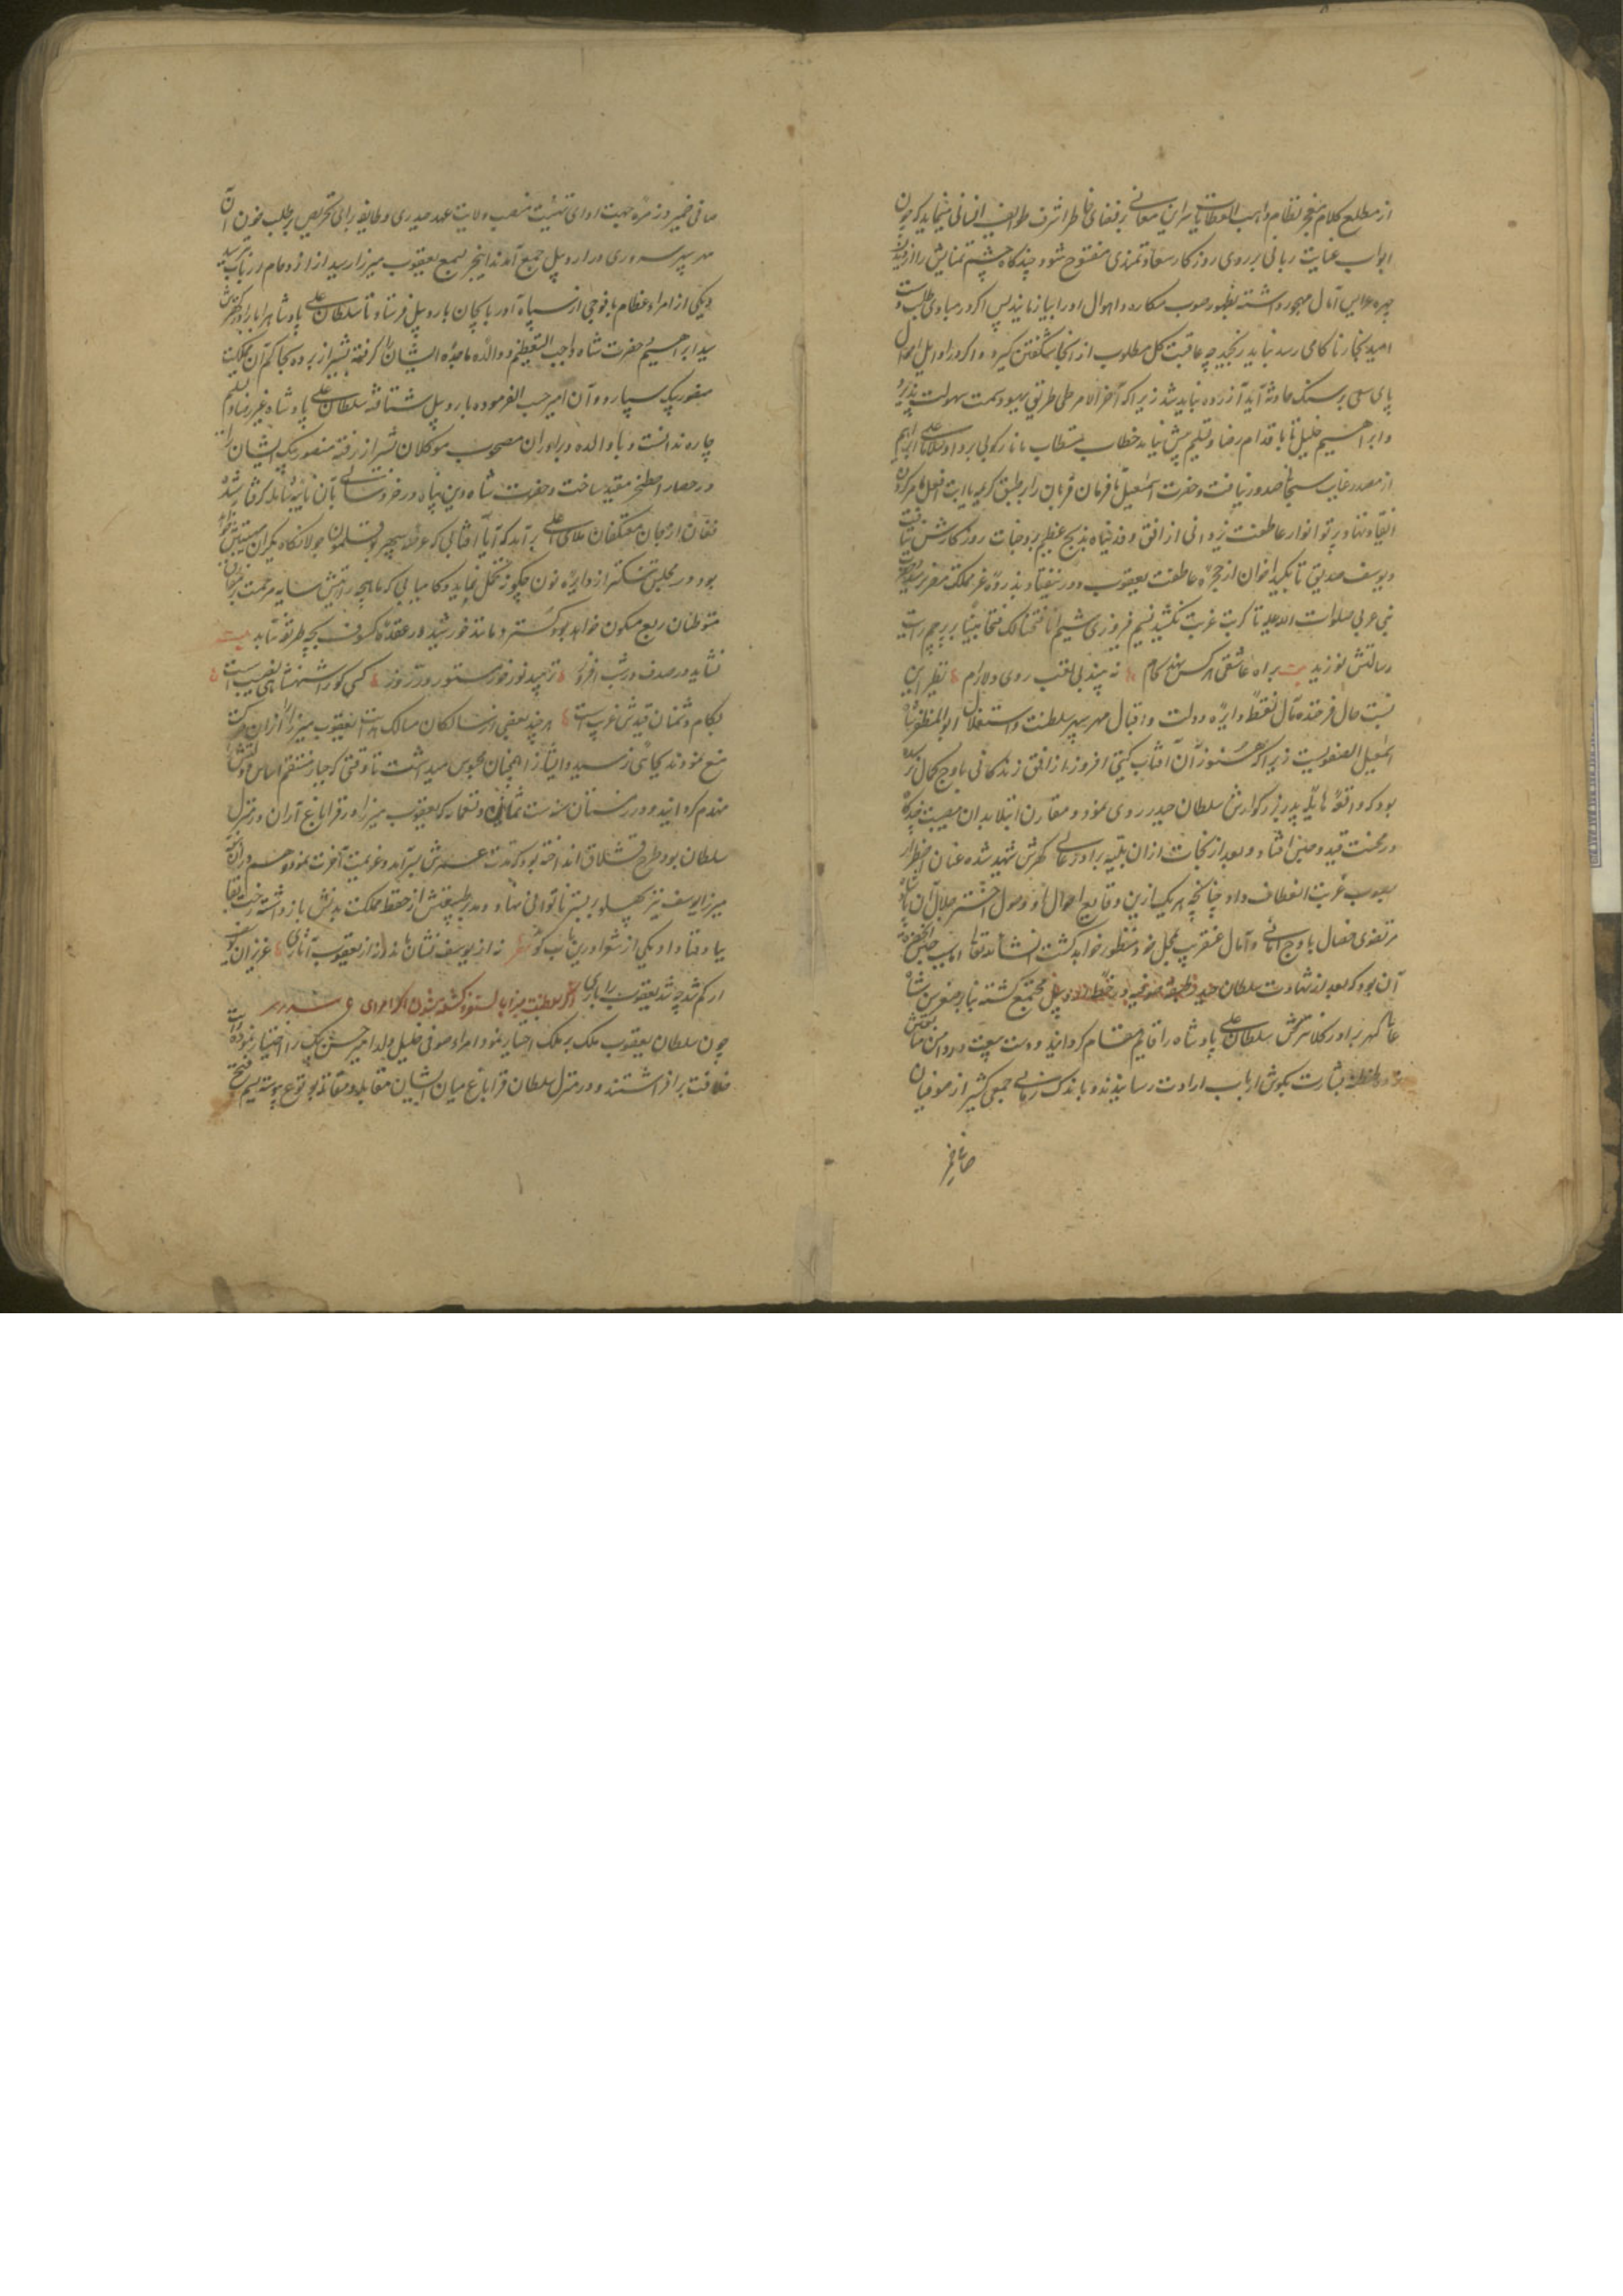 از مطلع کلام معجز نظام واهب العطایا سراین معانی بر فضای خاطر اشرف طوایف انسانی میتابد که چون
ابواب عنایت ربانی بر روی روزکار سعادتمندی مفتوح شود چندکاه چشم تمنایش را از دیدن
چهره عرایس آمال مهجور داشته بظهور صوب مکاره و اهوال او را بیازمایند پس اکر در مبادی طلب دست
امید بخار ناکامی رسد نباید رنجید چه عاقبت کل مطلوب از انجا شکفتن کیرد و اکر در اوایل احوال
پای سعی بر سنک حادثه آید آزرده نباید شد زیرا که آخر الامر طی طریق بهبود سمت سهولت پذیرد
وابراهیم خلیل تا باقدام رضا و تسلیم پیش نیامد خطاب مستطاب یا نار کونی بردا وسلاما علی ابراهیم
از مصدر عنایت سبحانی صدور نیافت و حضرت اسمعیل تا فرمان قربان را بر طبق کریمه یا ابت افعل ما تومر کردن
انقیاد ننهاد پرتو انوار عاطفت یزدانی از افق وفدیناه بذبح عظیم بر وجنات روزکارش نتافت
ویوسف صدیق تا بکید اخوان از حجره عاطفت یعقوب دور نیفتاد بذروه عز مملکت مصر نرسید و حضرت
نبی عربی صلوات الله علیه تا کربت غربت نکشید نسیم فیروزی شمیم انا فتحنا لک فتحا مبینا بر پرچم رایت
رسالتش نوزید بیت براه عاشقی هر کس نهد کام نه بیند بی تعب روی دلارام نظیر این
نسبت حال فرخنده مآل نقطه دایره دولت و اقبال مهر سپهر سلطنت و استقلال ابوالمظفر شاه
اسمعیل الصفویست زیرا که هنوز آن آفتاب کیتی افروز از افق زندکانی باوج کمال نرسیده
بود که واقعه هایله پدر بزرکوارش سلطان حیدر روی نمود و مقارن ابتلا بدان مصیبت چندکاه
در محنت قید و حبس افتاد و بعد از نجات ازان بلیه برادر عالی کهرش شهید شده عنان اضطرار
بصوب غربت انعطاف داد چنانچه هر یک ازین وقایع احوال او و وصول اختر جلال آن پادشاه
مرتضوی خصال باوج امانی و آمال عنقریب بمحل خود منظور خواهد کشت انشاالله تعالی
آن بود که بعد از شهادت سلطان حیدر طبقه صوفیه در خطه اردوبیل مجتمع کشته بنابر صغر سن شاه
عالی کهر برادر کلانترش سلطان علی پادشاه را قایم مقام کردانید و دست بیعت بدو دادن
طنطنه بشارت بکوش ارباب ارادت رسانیدند و باندک زمانی جمعی کثیر از صوفیان
صافی ضمیر
صافی ضمیر در زمره جهت ادای تهنیت منصب ولایت عهد حیدری و طایفه برای تحریص بر طلب خون آن
مهر سپهر سروری در اردوبیل جمع آمدند اینخبر بسمع یعقوب میرزا رسید از ازدحام در باب ترسید
ویکی از امراء عظام با فوجی از سپاه آذربایجان باردوبیل فرستاد تا سلطان علی پادشاه را با برادر دیکرش
سید ابراهیم حضرت شاه واجب التعظیم و والده ماجده ایشان را کرفته بشیراز برده بحاکم آن مملکت
منصور بیک سپارد و آن امیر حسب الفرموده باردوبیل شتافته سلطان علی پادشاه بغیر رضا و تسلیم
چاره ندانست و با والده و برادران مصحوب موکلان بشیراز رفته منصور بیک ایشان را
در حصار اصطخر مقید ساخت و حضرت شاه دین پناه در خردسالی بآن نایبه هایله کرفتار شد
فغان از جان معتکفان ملای اعلی برآمد که آیا آفتابی که عرصه سپهر بوقلمون جولانکاه یکران
بود در مجلس تنکتر از دایره نون چکونه تحمل نماید و کامیابی که ماهچه رایتش سایه مرحمت بر مفارق
متوطنان ربع مسکون خواهد بود کسترد مانند خورشید در عقده کسوف بچه طریق تابد بیت
نشاید در صدف در شب افروز نزیبد نور خور مستور در روز کسی کو را شهنشاهی نصیبست
بکام دشمنان قیدش غریبست هر چند بعضی از سالکان مسالک هدایت یعقوب میرزا را ازان حرکت
منع نمودند بجائی نرسید و ایشانرا همچنان محبوس میداشت تا وقتی که جبار منتقم اساس دولتش
منهدم کردانید و در زمستان سنه ست تسعین و ثمانمایه که یعقوب میرزا در قراباغ آران در منزل
سلطان بود طرح قشلاق انداخته بود که مدت عمرش بسرآمد و عزیمت آخرت نمود و هم دران
میرزا یوسف نیز پهلو بر بستر ناتوانی نهاد و مدبر طبیعتش از حفظ مملکت بدنش باز داشته رخت بقا
بباد فنا داد ویکی از شعرا درین باب کوید شعر نه از یوسف نشان دیدم نه از یعقوب آثاری عزیزان یوسف
ار کم شد چه شد یعقوب را باری ذکر سلطنت میرزا بایسنقر و کشته شدن اکثر امرای
چون سلطان یعقوب ملک بر ملک اختیار نمود امراء صوفی خلیل ولد امیر حسن بیک را اختیار نموده رایت
خلافت برافراشتند و در منزل سلطان قراباغ میان ایشان مقابله و مقاتله بوقوع پیوسته نسیم فتح